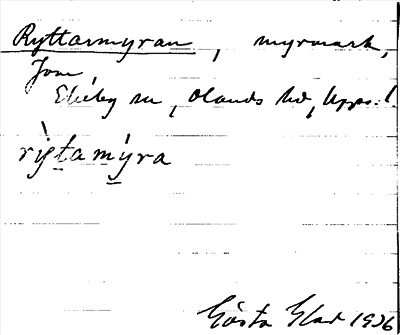 Ryttarmyran, myrmark,
Jom
Ekeby sn, Olands hd, Upps. l.
rỳṭa mýra
Gösta Elar 1926